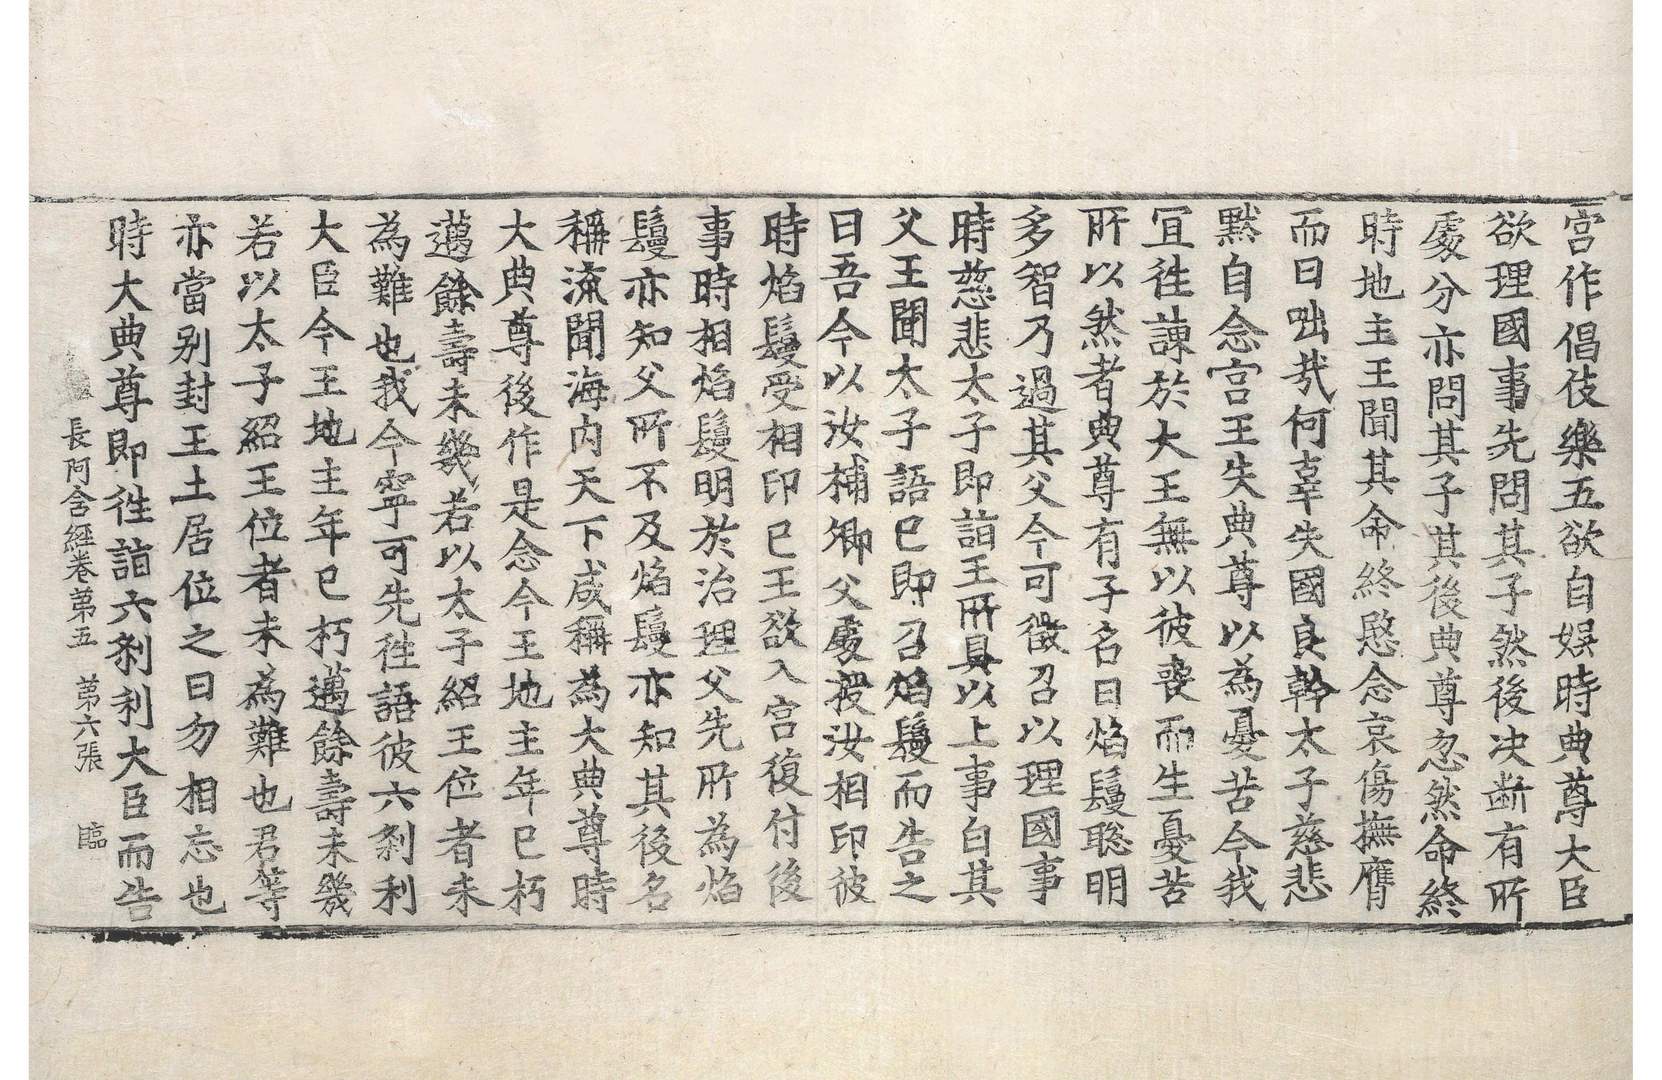 宮作倡伎樂五欲自娛時典尊大臣
欲理國事先問其子然後决断有所
處分亦問其子其後典尊忽然命終
時地主王聞其命終愍念哀傷撫膺
而曰咄㢤何辜失國良幹太子慈悲
默自念宮王失典尊以為憂苦今我
冝徃諫於大王無以彼喪而生憂苦
所以然者典尊有子名曰焰鬘聡明
多智乃過其父今可徵召以理國事
時慈悲太子即詣王所具以上事白其
父王聞太子語已即召焰鬘而告之
曰吾今以汝補卿父處授汝相印彼
時焰鬘受相印已王欲入宮復付後
事時相焰鬘明於治理父先所為焰
鬘亦知父所不及焰鬘亦知其後名
稱流聞海内天下咸稱為大典尊時
大典尊後作是念今王地主年已朽
邁餘壽未幾若以太子紹王位者未
為難也我今寧可先徃語彼六刹利
大臣今王地主年已朽邁餘壽未幾
若以太子紹王位者未為難也君等
亦當別封王土居位之日勿相忘也
時大典尊即徃詣六刹利大臣而告
長阿含經卷第五 第六張 臨